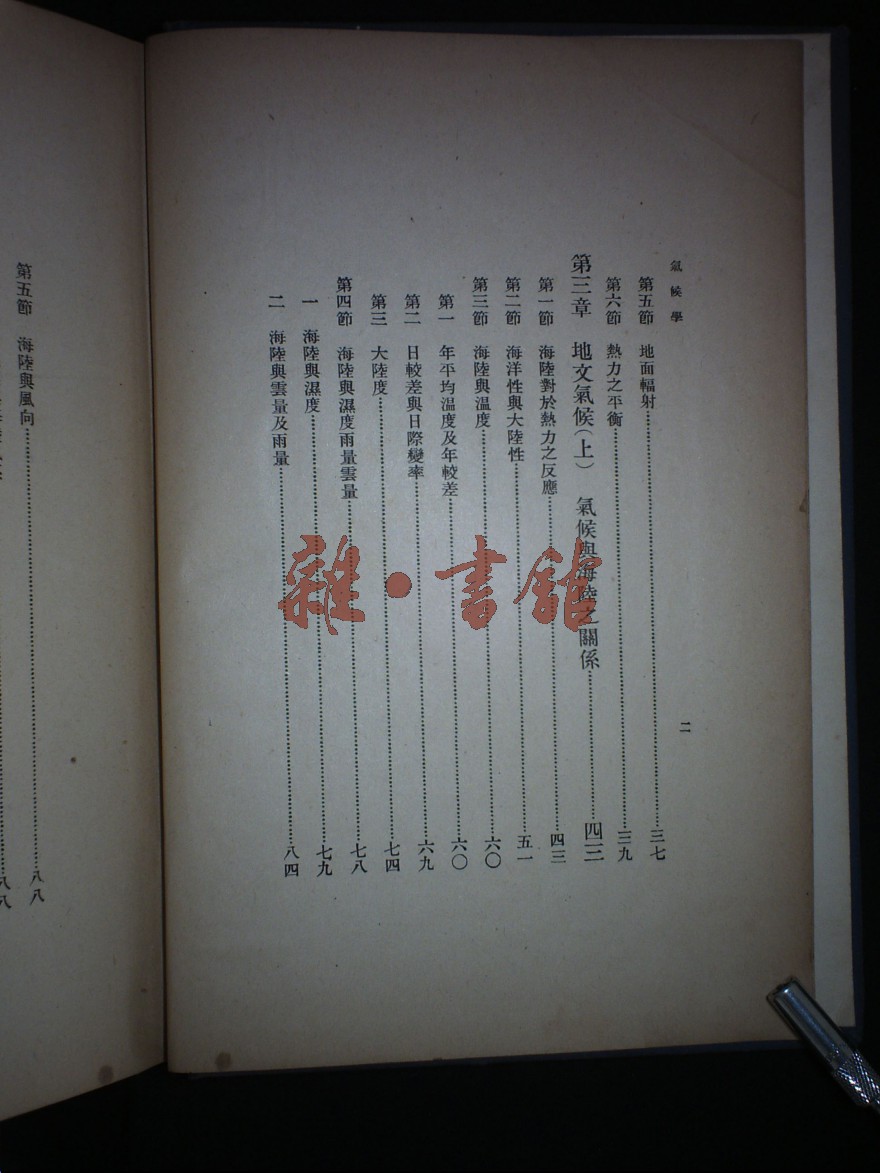 氣候學
二
第五節 地面輻射……三七
第六節 熱力之平衡……三九
第三章 地文氣候(上) 氣候與海陸之關係……四三
第一節 海陸對於熱力之反應……四三
第二節 海洋性與大陸性……五一
第三節 海陸與溫度……六〇
第一 年平均溫度及年較差……六〇
第二 日較差與日際變率……六九
第三 大陸度……七四
第四節 海陸與濕度雨量雲量……七八
一 海陸與濕度……七九
二 海陸與雲量及雨量……八四
第五節 海陸與風向……八八
八八
雜·書館